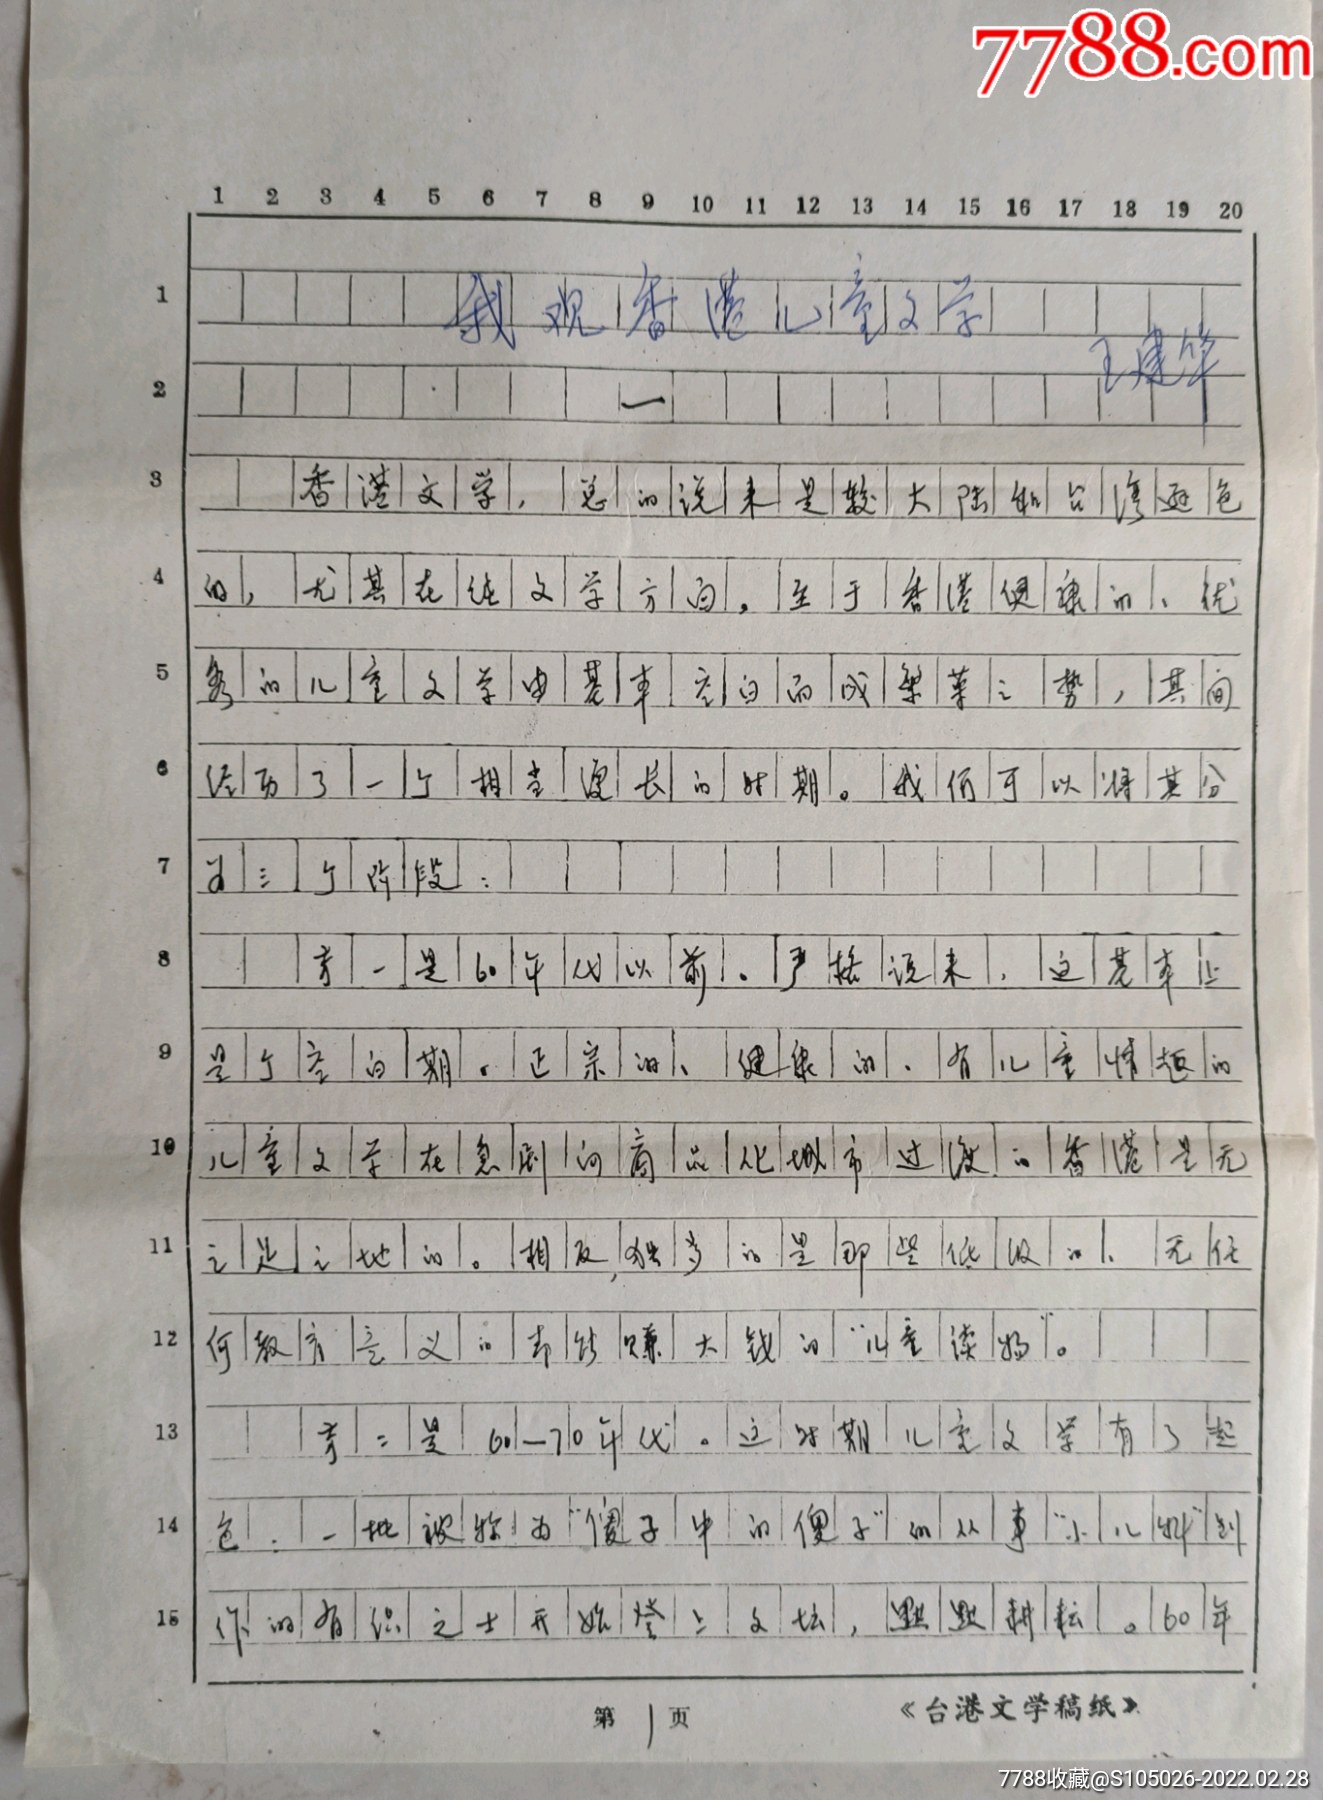 7788.com
1 2 3 4 5 6 7 8 9 10 11 12 13 14 15 16 17 18 19 20
1 我观香港儿童文学
王建华
2 一
3 香港文学，总的说来是较大陆和台湾逊色
4 的，尤其在纯文学方面。至于香港健康的、优
5 秀的儿童文学由基本空白而成繁荣之势，其间
6 经历了一个相当漫长的时期。我们可以将其分
7 为三个阶段：
8 第一是60年代以前。严格说来，这基本上
9 是个空白期。正宗的、健康的、有儿童情趣的
10 儿童文学在急剧向商品化城市过渡的香港是无
11 立足之地的。相反，独多的是那些低级的、无任
12 何教育意义的却能赚大钱的“儿童读物”。
13 第二是60—70年代。这时期儿童文学有了起
14 色：一批被称为“傻子中的傻子”的从事“小儿科”创
15 作的有识之士开始登上文坛，默默耕耘。60年
第1页 《台港文学稿纸》
7788收藏@S105026-2022.02.28